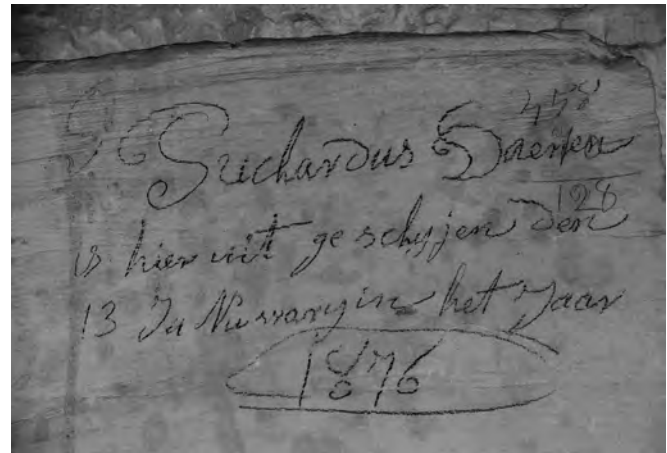 458
Suchardus Daemen
128
is hier uit geschyjen den
13 Ja Nuwaryin het Jaar
1876